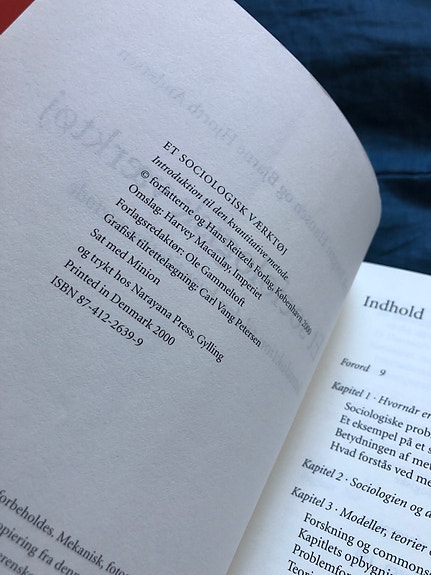 ET SOCIOLOGISK VÆRKTØJ
Introduktion til den kvantitative metode
© forfatterne og Hans Reitzels Forlag, København 2000
Omslag: Harvey Macaulay, Imperiet
Forlagsredaktør: Ole Gammeltoft
Grafisk tilrettelægning: Carl Vang Petersen
Sat med Minion
og trykt hos Narayana Press, Gylling
Printed in Denmark 2000
ISBN 87-412-2639-9
forbeholdes. Mekanisk, foto
opiering fra denn
Indhold
Forord 9
Kapitel 1 · Hvornår er
Sociologiske prob
Et eksempel på et s
Betydningen af met
Hvad forstås ved me
Kapitel 2 · Sociologien og d
Kapitel 3 · Modeller, teorier o
Forskning og commons
Kapitlets opbygnin
Problemfor
Teorie